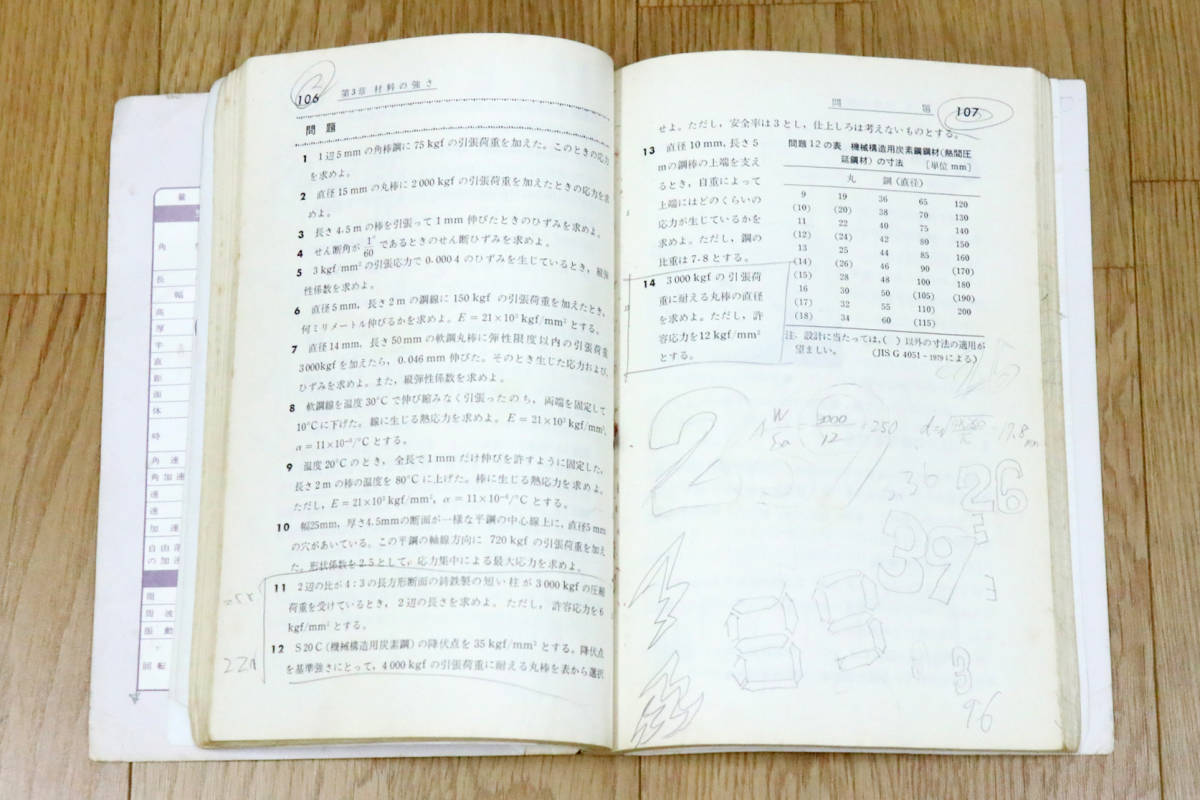 106
第3章 材料の強さ
問題
1 1辺5mmの角棒鋼に75kgfの引張荷重を加えた。このときの応力
を求めよ。
2 直径15mmの丸棒に2000kgfの引張荷重を加えたときの応力を求
めよ。
3 長さ4.5mの棒を引張って1mm伸びたときのひずみを求めよ。
4 せん断角が1°/60であるときのせん断ひずみを求めよ。
5 3kgf/mm²の引張応力で0.0004のひずみを生じているとき,縦弾
性係数を求めよ。
6 直径5mm,長さ2mの鋼線に150kgfの引張荷重を加えたとき,
何ミリメートル伸びるかを求めよ。E=21×10³kgf/mm²とする。
7 直径14mm,長さ50mmの軟鋼丸棒に弾性限度以内の引張荷重
3000kgfを加えたら,0.046mm伸びた。そのとき生じた応力および,
ひずみを求めよ。また,縦弾性係数を求めよ。
8 軟鋼線を温度30℃で伸び縮みなく引張ったのち,両端を固定して
10℃に下げた。線に生じる熱応力を求めよ。E=21×10³kgf/mm²,
α=11×10⁻⁶/℃とする。
9 温度20℃のとき,全長で1mmだけ伸びを許すように固定した,
長さ2mの棒の温度を80℃に上げた。棒に生じる熱応力を求めよ。
ただし,E=21×10³kgf/mm²,α=11×10⁻⁶/℃とする。
10 幅25mm,厚さ4.5mmの断面が一様な平鋼の中心線上に,直径5mm
の穴があいている。この平鋼の軸線方向に720kgfの引張荷重を加え
た。形状係数を2.5として,応力集中による最大応力を求めよ。
11 2辺の比が4:3の長方形断面の鋳鉄製の短い柱が3000kgfの圧縮
荷重を受けているとき,2辺の長さを求めよ。ただし,許容応力を6
kgf/mm²とする。
12 S20C(機械構造用炭素鋼)の降伏点を35kgf/mm²とする。降伏点
を基準強さにとって,4000kgfの引張荷重に耐える丸棒を表から選択
問題
107
せよ。ただし,安全率は3とし,仕上しろは考えないものとする。
13 直径10mm,長さ5
mの鋼棒の上端を支え
るとき,自重によって
上端にはどのくらいの
応力が生じているかを
求めよ。ただし,鋼の
比重は7.8とする。
14 3000kgfの引張荷
重に耐える丸棒の直径
を求めよ。ただし,許
容応力を12kgf/mm²
とする。
問題12の表 機械構造用炭素鋼鋼材(熱間圧
延鋼材)の寸法 [単位mm]
丸鋼(直径)
9 19 36 65 120
(10) (20) 38 70 130
11 22 40 75 140
(12) (24) 42 80 150
13 25 44 85 160
(14) (26) 46 90 (170)
(15) 28 48 100 180
16 30 50 (105) (190)
(17) 32 55 110) 200
(18) 34 60 (115)
注. 設計に当たっては,( )以外の寸法の適用が
望ましい。 (JIS G 4051-1979による)
W 3000
12 = 250
26
39
3
96
角
長
幅
高
厚
半
直
距
面
体
時
角速
角加速
速
速
加速
自由落
の加速
周
周波
振動
回転
量